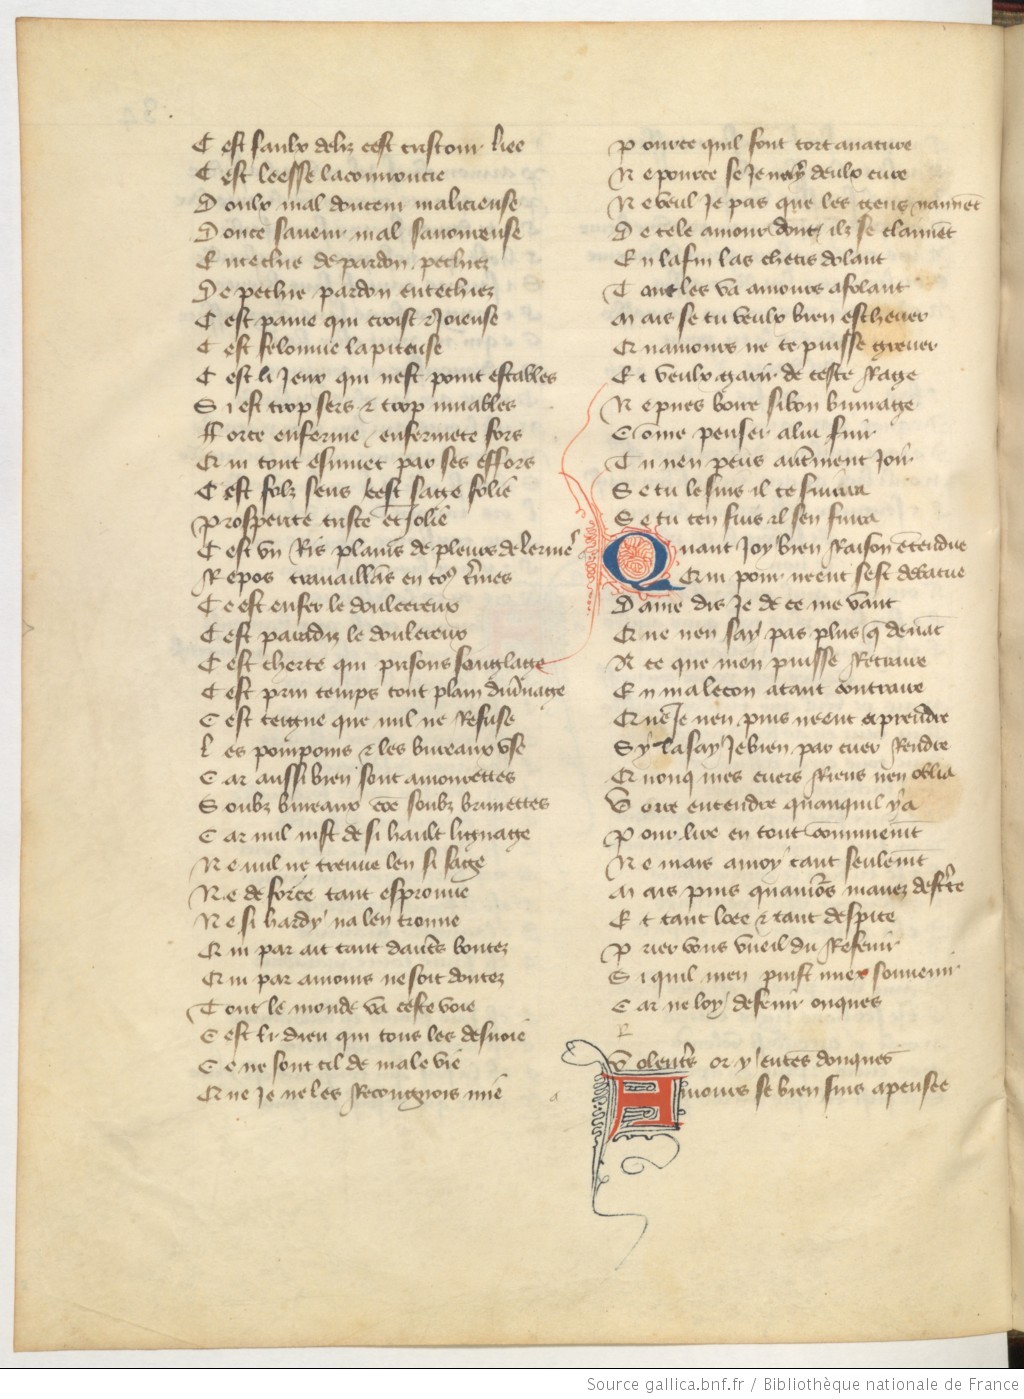 C est saulx deliz cest tristour liee
C est leesse lacourroucie
D oulx mal douceur malicieuse
D oulce saueur mal sauoureuse
E ntechie de pardon pechiez
D e pechie pardon entechiez
C est paine qui croist & Joieuse
C est felonnie la piteuse
C est li Jeux qui nest point estables
S i est trop fers & trop muables
ff orce enferme enfermete fors
Q ui tout esmuet par ses effors
C est folz sens cest sage folie
p rosperite triste et Jolie
C est vn Ris plains de pleurs de lermes
R epos trauaillans en tous termes
C e est enfer le doulcereux
C est paradiz le doulereux
C est chertre qui prisons souglaige
C est prin temps tout plain diuernage
C est teigne que nul ne Refuse
L es pourpoins & les bureaux vse
C ar aussi bien sont amourettes
S oubz bureaux come soubz brunettes
C ar nul nist de si hault lignage
N e nul ne treuue len si sage
N e de force tant esprouue
N e si hardy na len trouue
Q ui par ait tant dautres bontez
Q ui par amours ne soit dontez
T out le monde va ceste voie
C est li dieu qui tous les desuoie
C e ne sont cil de male vie
Q ue Je ne les Recongnois mie
p ource quil font tort a nature
N e pource se Je nay deulx cure
N e vueil Je pas que les gens naiment
D e tele amour dont ilz se claiment
E n la fin las chetis dolant
T ant les va amours afolant
M ais se tu veulx bien escheuer
Q uamours ne te puisse greuer
E t veulx garir de ceste Rage
N e pues boire si bon buurage
C ome penser a lui fuir
T u nen peus autrement Joir
S e tu le suis il te suiura
S e tu ten fuis il sen fuira
Q uant Joy bien Raison entendue
Q ui pour neent sest debatue
D ame dis Je de ce me vant
Q ue nen say pas plus que deuant
A ce que men puisse Retraire
E n ma lecon a tant contraire
Q ue Je nen puis neent aprendre
S y la say Je bien par cuer Rendre
Q uonq mes cuers Riens nen oblia
V oire entendre quanquil y a
p our lire en tout communement
N e mais a moy tant seulement
M ais puis quamours mauez descripte
E t tant loee & tant despite
p rier vous vueil du Refenir
S i quil men puist miex souuenir
C ar ne loy defenir onques
R
V olentiers or y entens donques
A mours se bien suis apensee
Source gallica.bnf.fr / Bibliothèque nationale de France